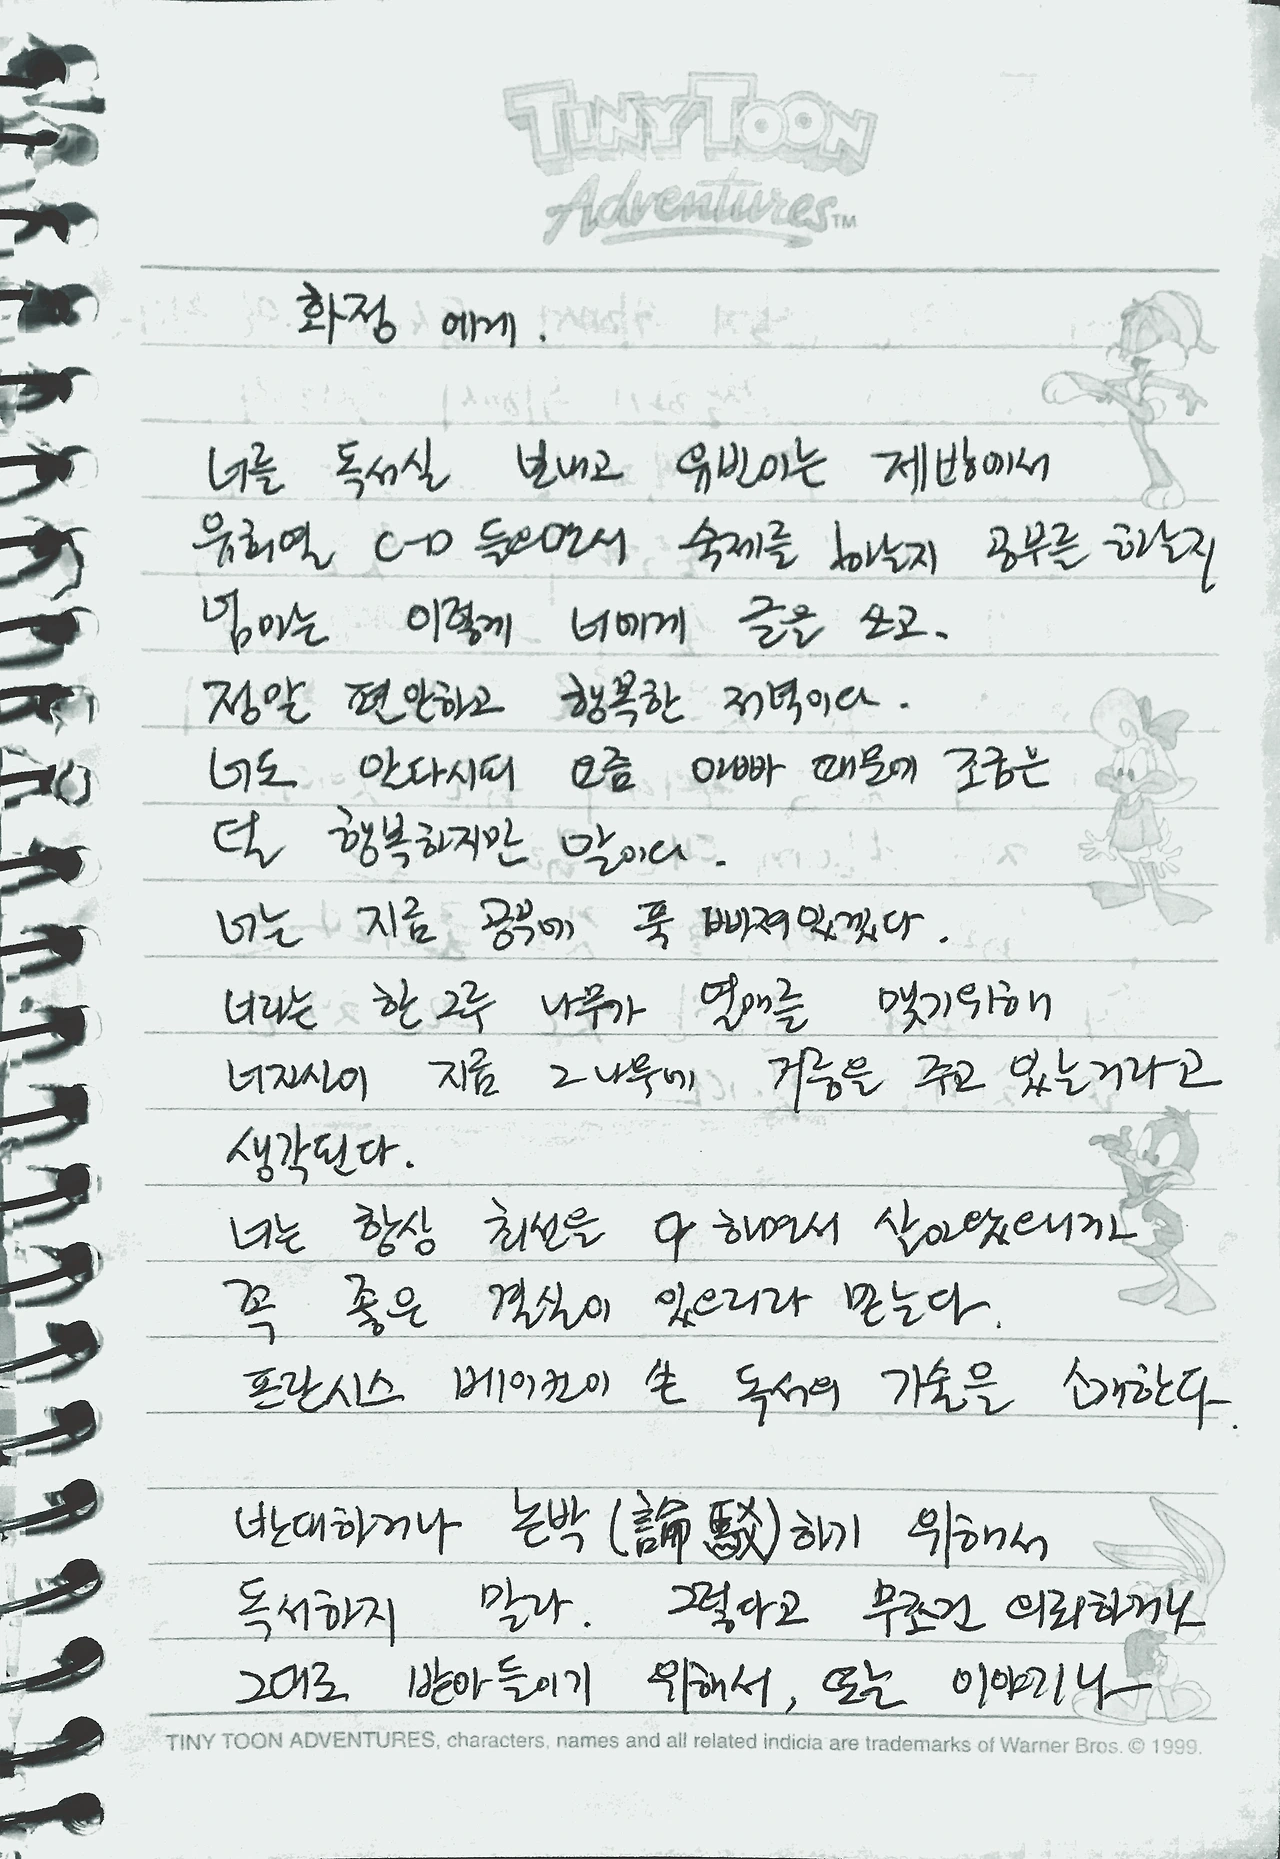 TINY TOON
Adventures TM
화정 에게.
너를 독서실 보내고 유빈이는 제방에서
유희열 CD 들으면서 숙제를 하는지 공부를 하는지
엄마는 이렇게 너에게 글을 쓰고.
정말 편안하고 행복한 저녁이다.
너도 안다시피 요즘 아빠 때문에 조금은
덜 행복하지만 말이다.
너는 지금 공부에 푹 빠져있겠다.
너라는 한그루 나무가 열매를 맺기위해
너자신이 지금 그나무에 거름을 주고 있는거라고
생각된다.
너는 항상 최선을 다 하면서 살아왔으니까
꼭 좋은 결실이 있으리라 믿는다.
프란시스 베이컨이 쓴 독서의 기술을 소개한다.
반대하거나 논박(論駁)하기 위해서
독서하지 말라. 그렇다고 무조건 의뢰하거나
그대로 받아들이기 위해서, 또는 이야기나
TINY TOON ADVENTURES, characters, names and all related indicia are trademarks of Warner Bros. © 1999.